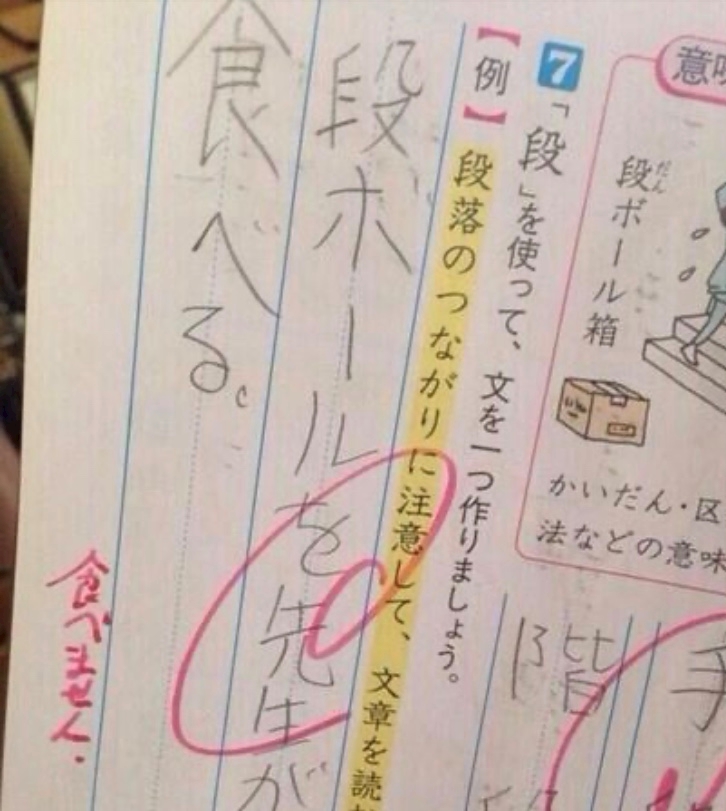 意味
段ボール箱
だん
かいだん・区
法などの意味
7 「段」を使って、文を一つ作りましょう。
【例】段落のつながりに注意して、文章を読
段ボールを先生が
食べる。
食べません。
階
手